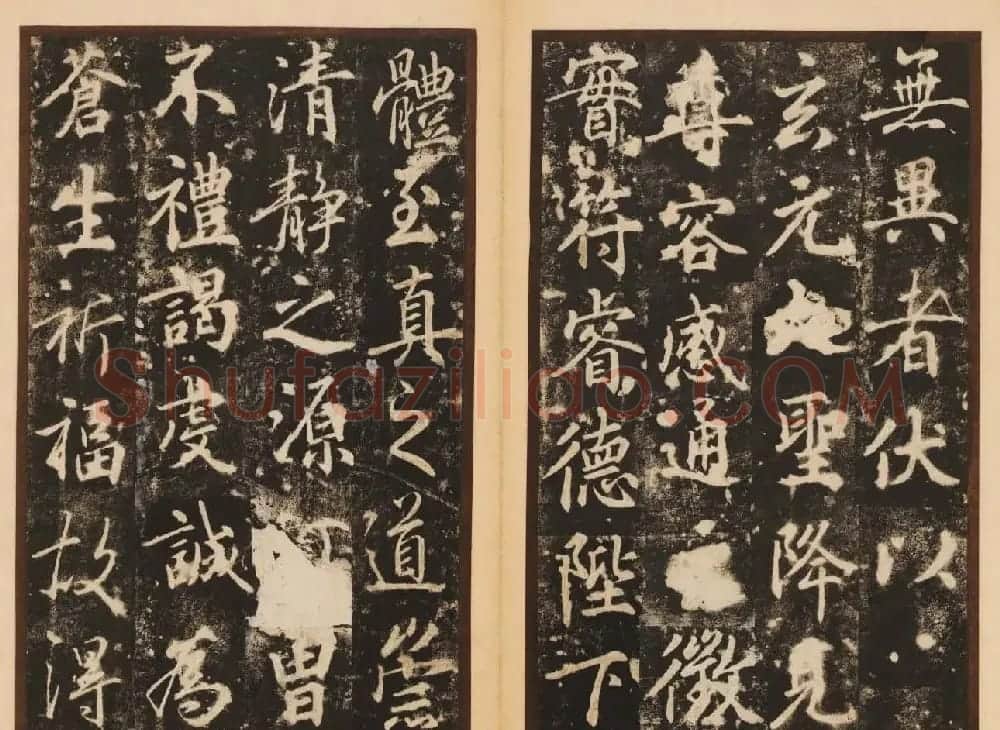 無異者伏以
玄元聖降見
尊容感通徵
實符睿德陛下
體至真之道崇
清靜之源曾
不禮謁虔誠為
蒼生祈福故得
Shufaziliao.COM